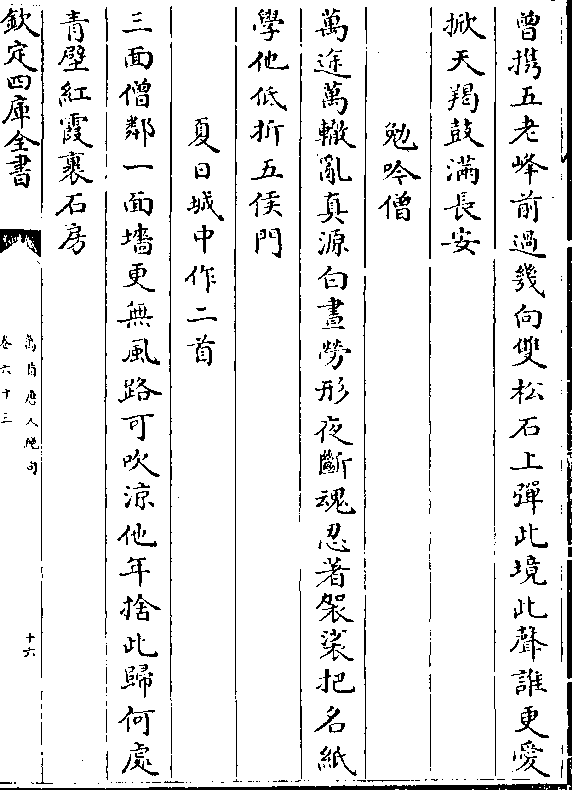 曾携五老峰前過幾向雙松石上彈此境此聲誰更愛
掀天羯鼓滿長安
勉吟僧
萬途萬轍亂真源白晝勞形夜斷魂忍著袈裟把名紙
學他低折五侯門
夏日城中作二首
三面僧鄰一面墻更無風路可吹涼他年捨此歸何處
青壁紅霞裹石房
欽定四庫全書
萬首唐人絶句
卷六十三
十六